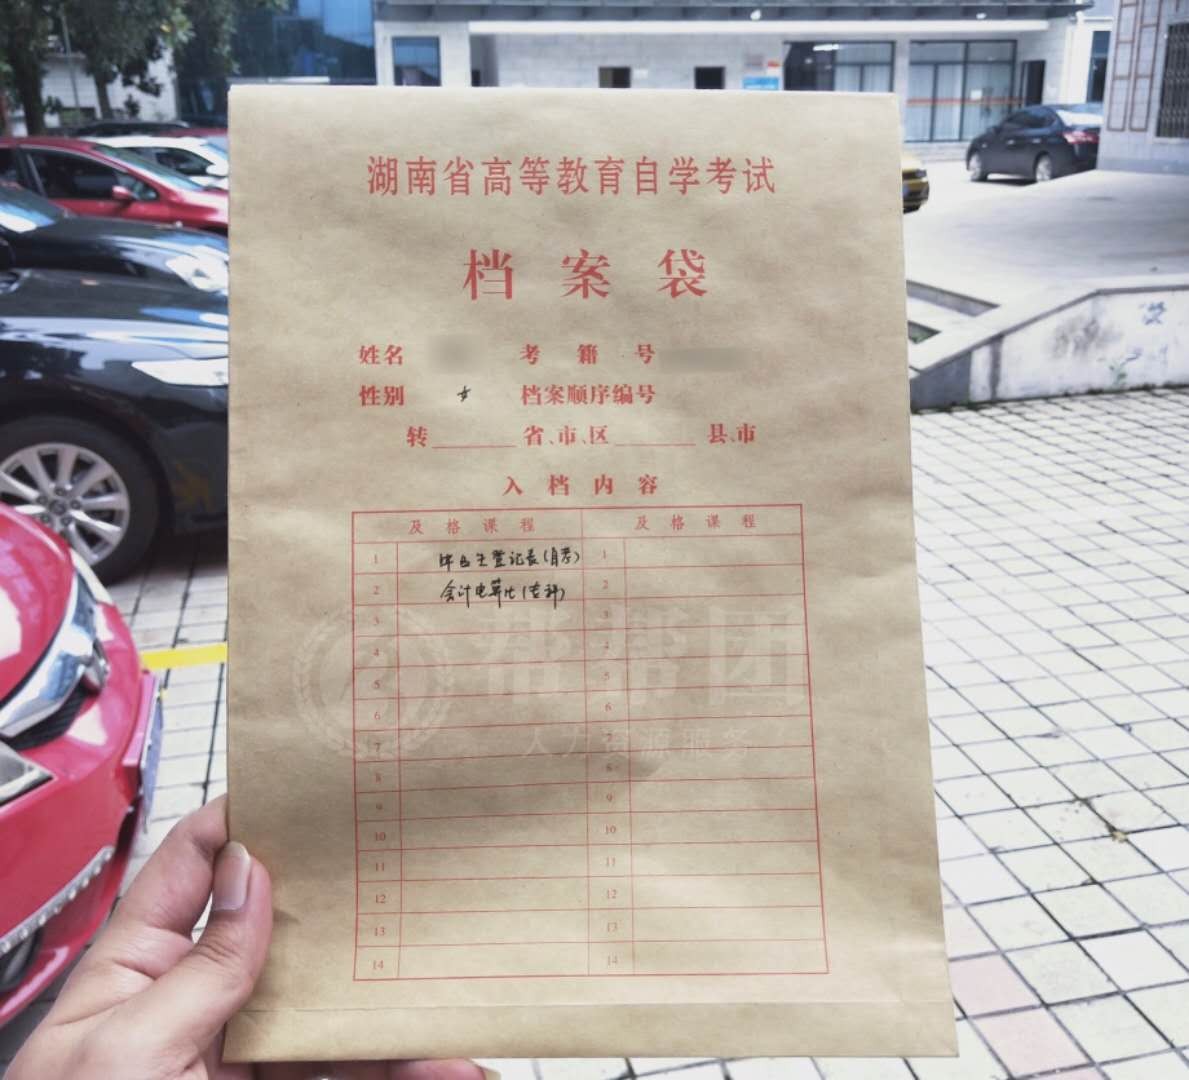 湖南省高等教育自学考试
档案袋
姓名 考籍号
性别 女 档案顺序编号
转 省、市、区 县、市
入档内容
及格课程 及格课程
1 毕业生登记表(自考) 1
2 会计电算化(专科) 2
3 3
4 4
5 5
6 6
7 7
8 8
9 9
10 10
11 11
12 12
13 13
14 14
帮帮团
人力资源服务